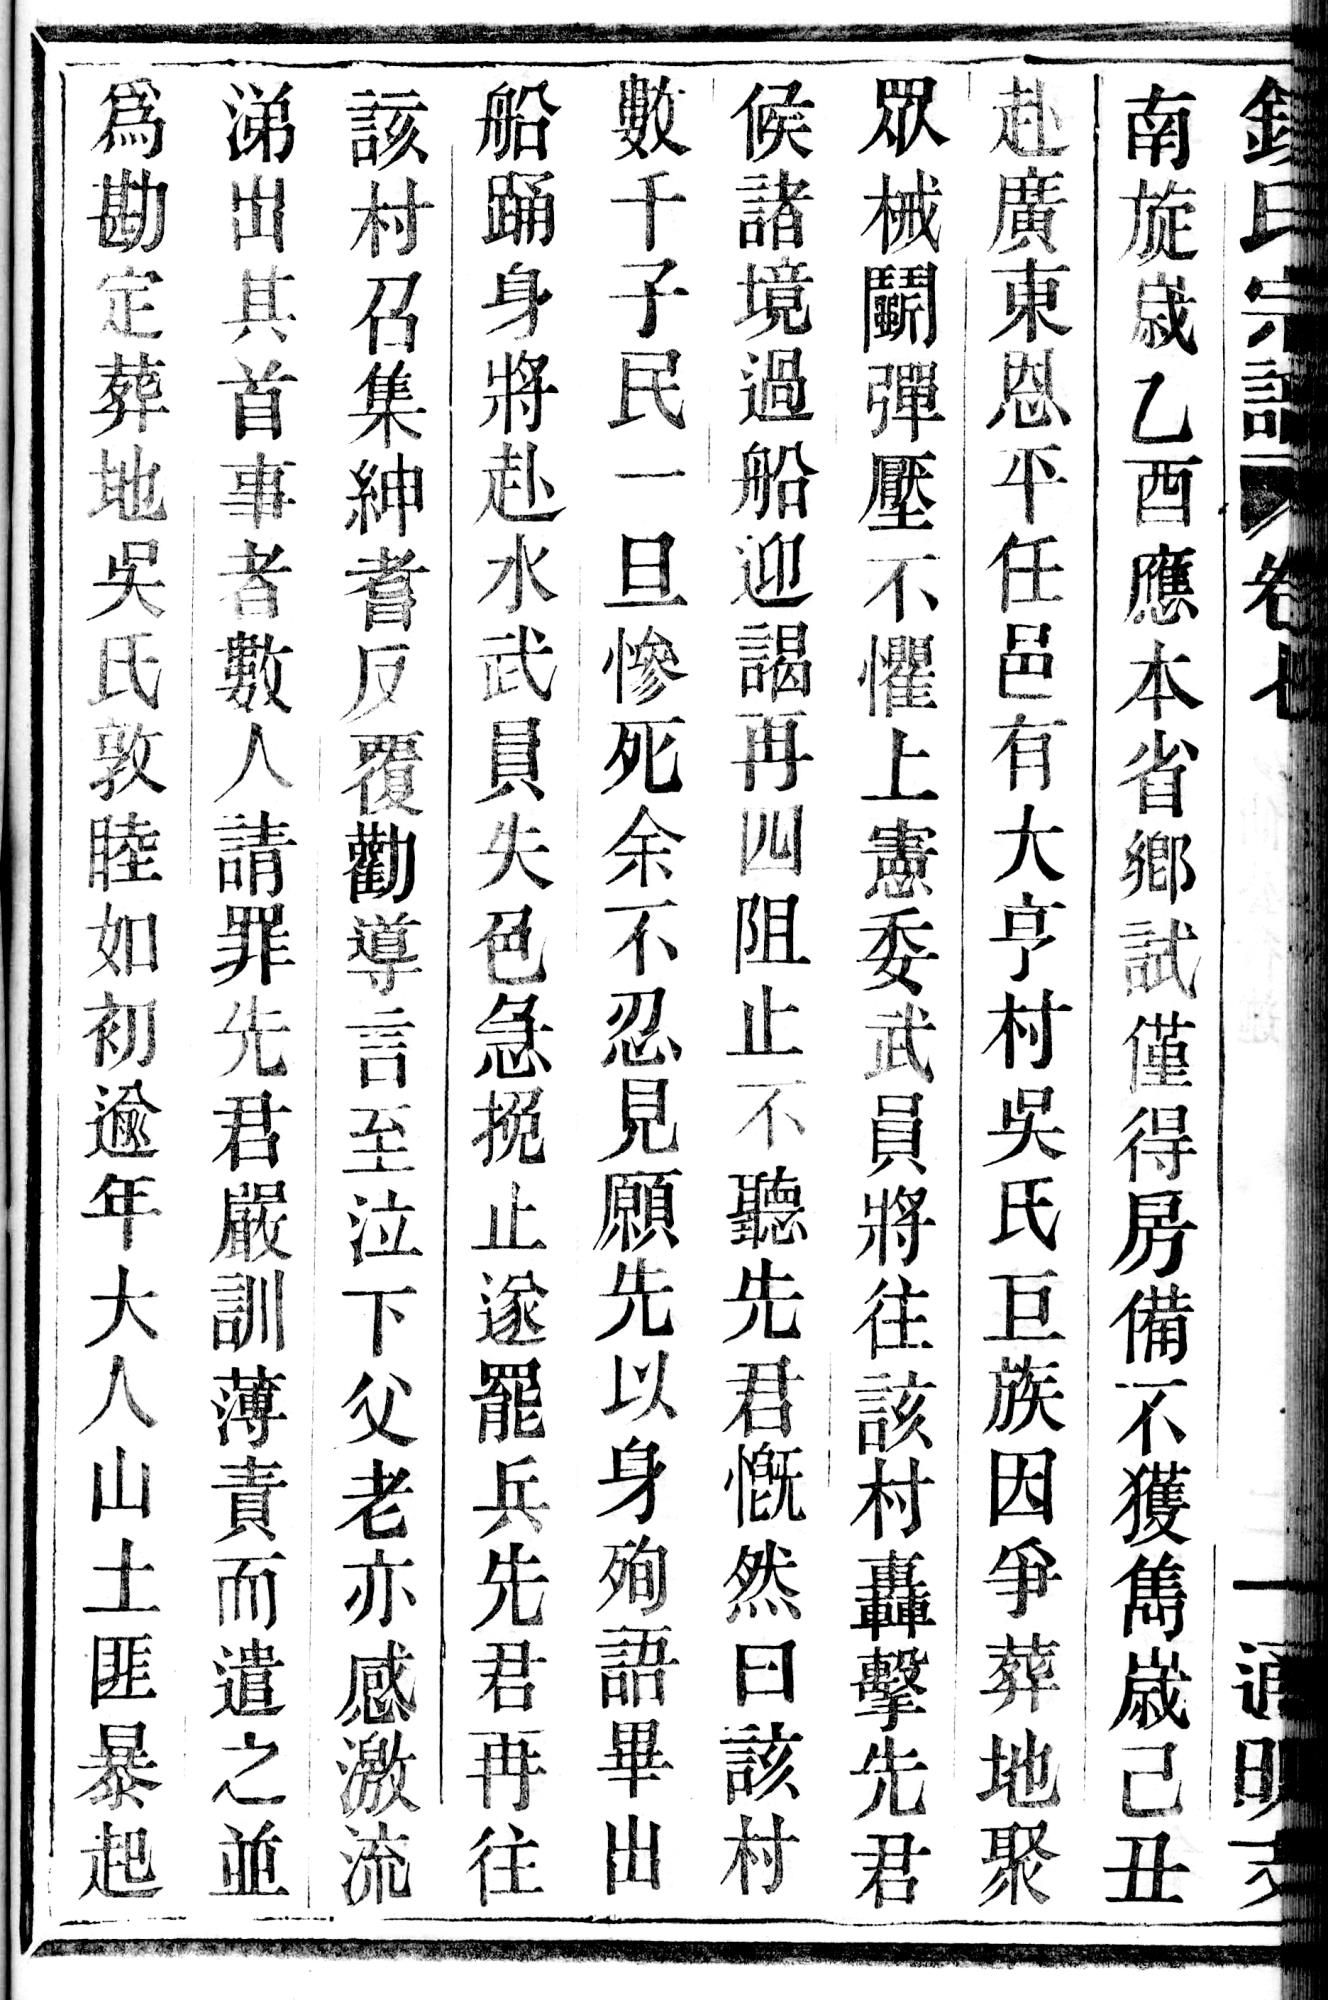 氏宗譜 卷七 一
南旋歲乙酉應本省鄉試僅得房備不獲雋歲己丑
赴廣東恩平任邑有大亨村吳氏巨族因爭葬地聚
眾械鬭彈壓不懼上憲委武員將往該村轟擊先君
候諸境過船迎謁再四阻止不聽先君慨然曰該村
數千子民一旦慘死余不忍見願先以身殉語畢出
船踊身將赴水武員失色急挽止遂罷兵先君再往
該村召集紳耆反覆勸導言至泣下父老亦感激流
涕出其首事者數人請罪先君嚴訓薄責而遣之並
為勘定葬地吳氏敦睦如初逾年大人山土匪暴起